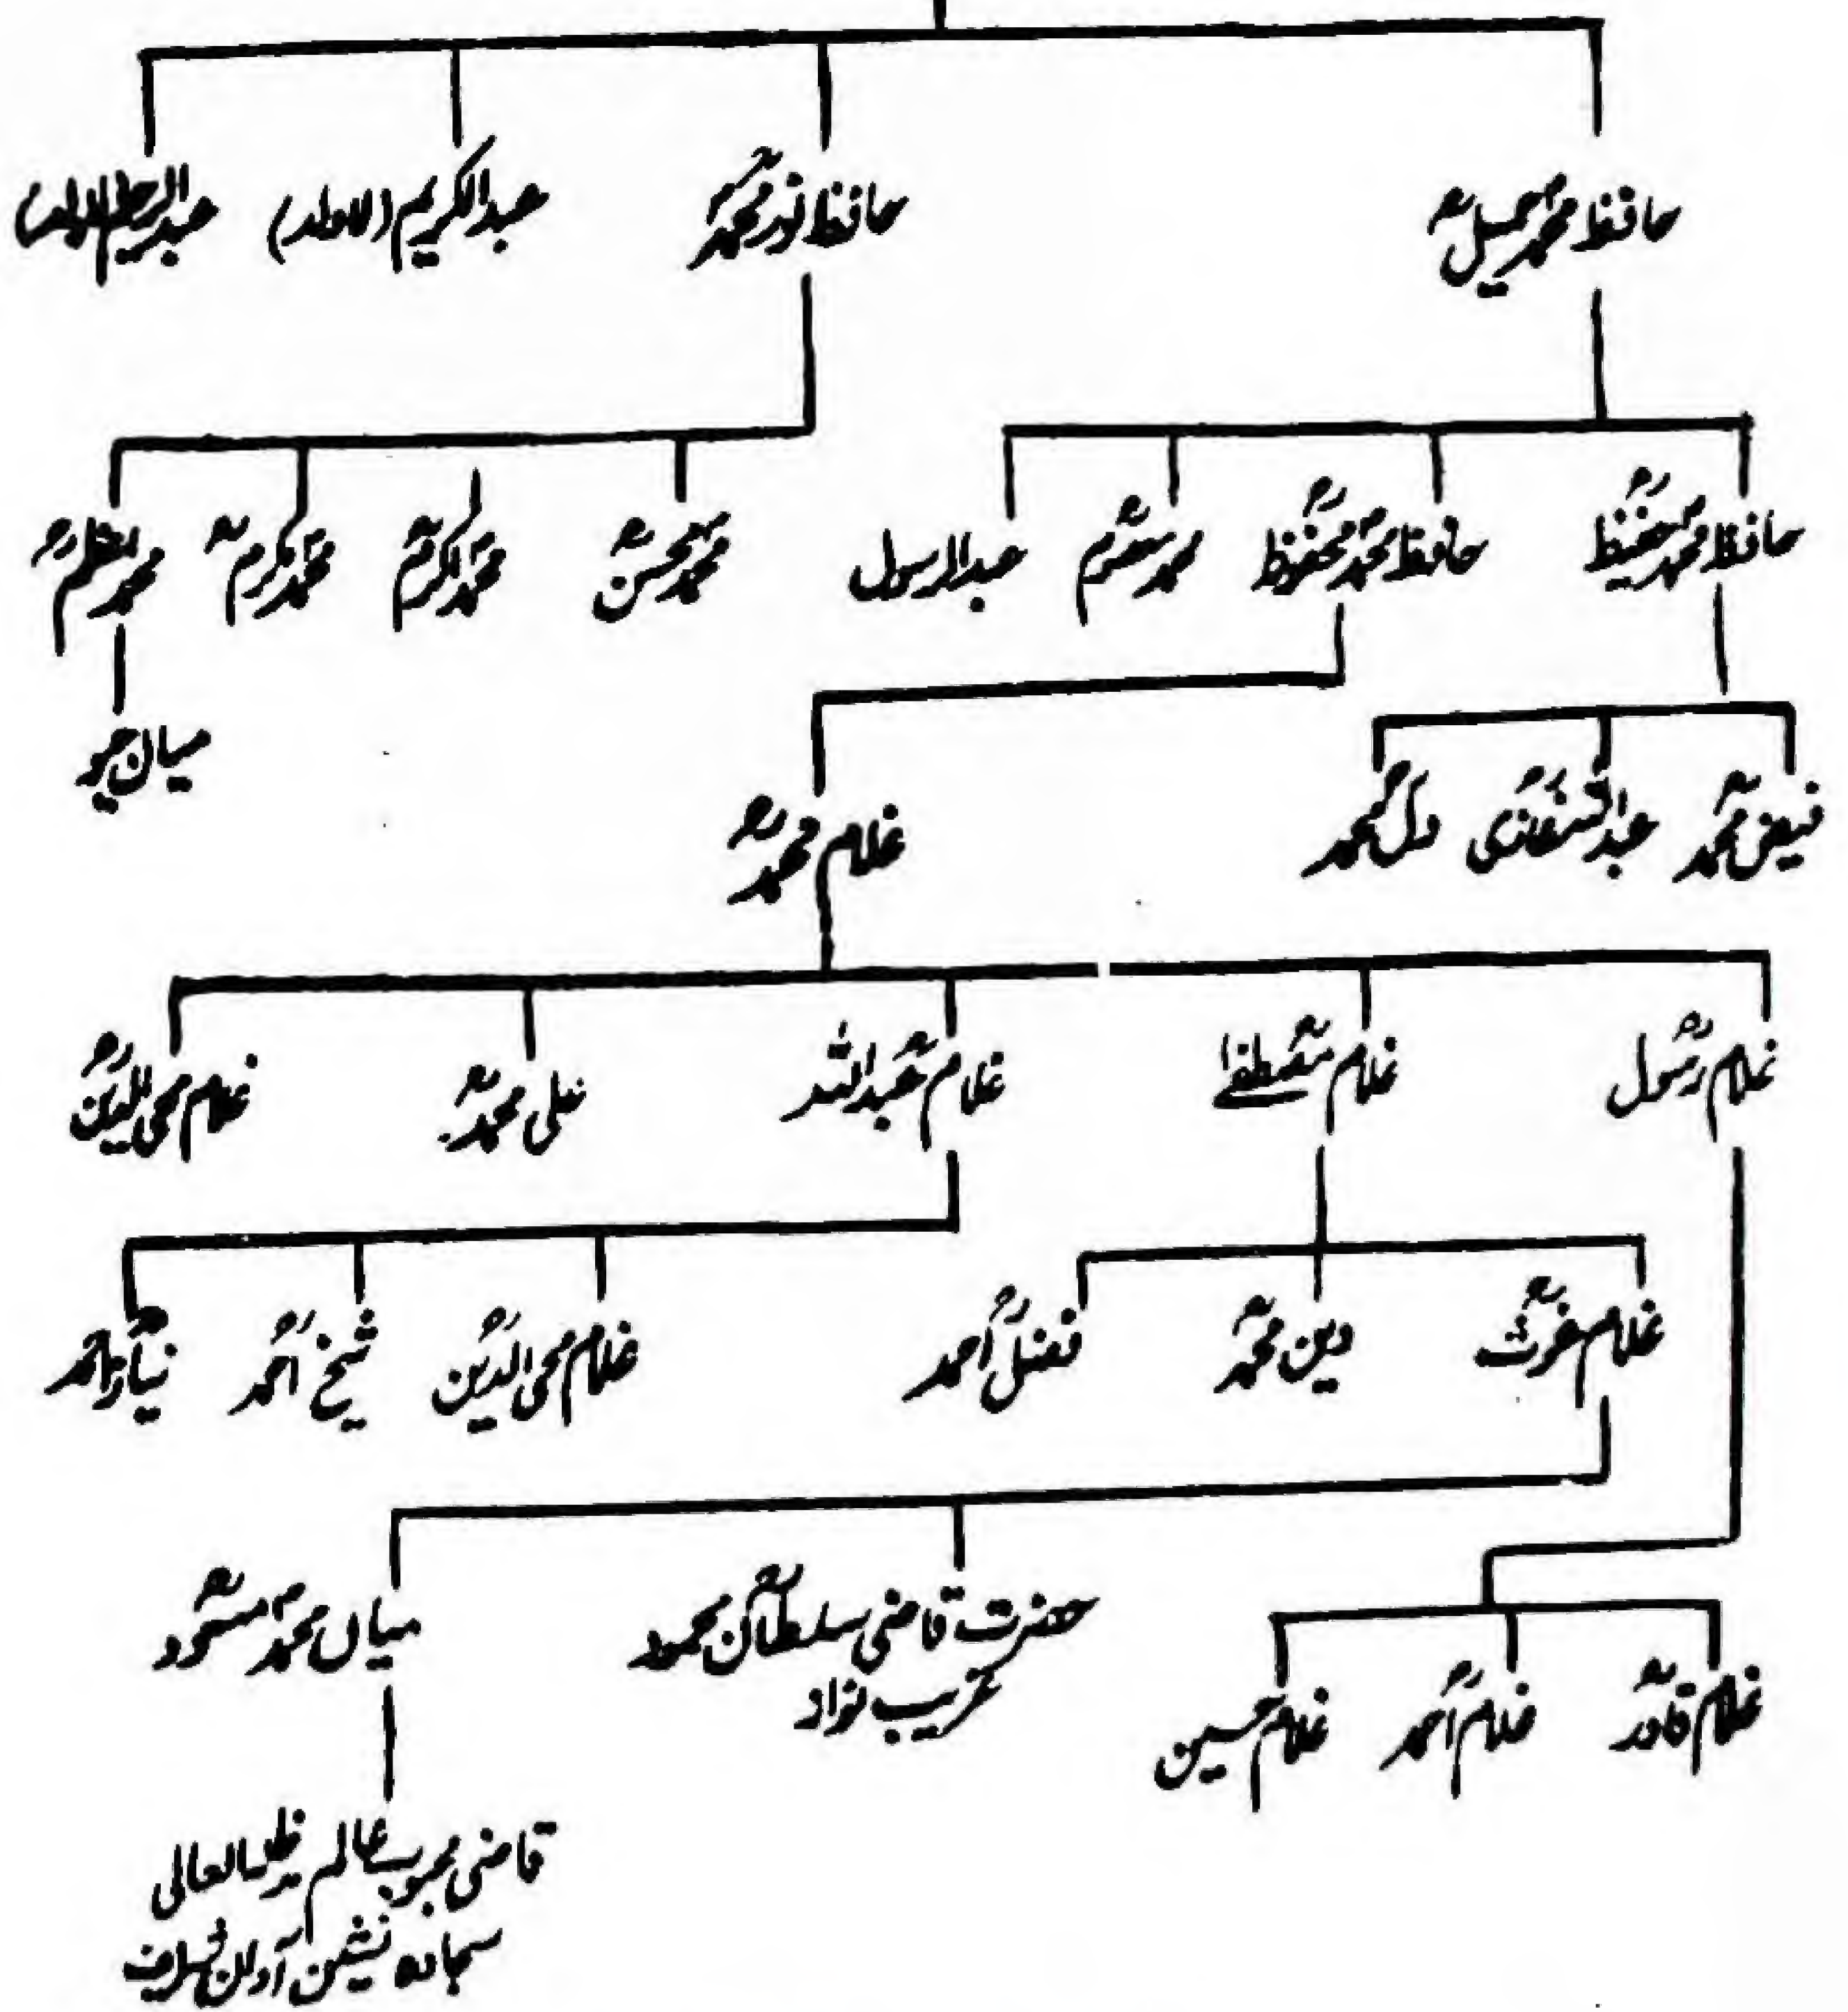 حافظ محمد جمیلؒ
حافظ نور محمدؒ
عبدالکریم (لاولد)
عبدالرحیم (لاولد)
حافظ محمد حفیظؒ
حافظ محمد محفوظؒ
محمد معصومؒ
عبدالرسول
محمد محسنؒ
محمد اکرمؒ
محمد مکرمؒ
محمد اعظمؒ
میاں جیو
فیض محمدؒ
عبداللہ غازیؒ
گل محمدؒ
غلام محمدؒ
غلام رسولؒ
غلام مصطفےٰؒ
غلام عبداللہؒ
علی محمدؒ
غلام محی الدینؒ
غلام غوثؒ
دین محمدؒ
فضل احمدؒ
غلام محی الدینؒ
شیخ احمدؒ
نیاز احمدؒ
غلام قادرؒ
غلام احمدؒ
غلام حسین
حضرت قاضی سلطان محمودؒ
غریب نواز
میاں محمد مسعودؒ
قاضی محبوب عالم مدظلہ العالی
سجادہ نشین آوان شریف